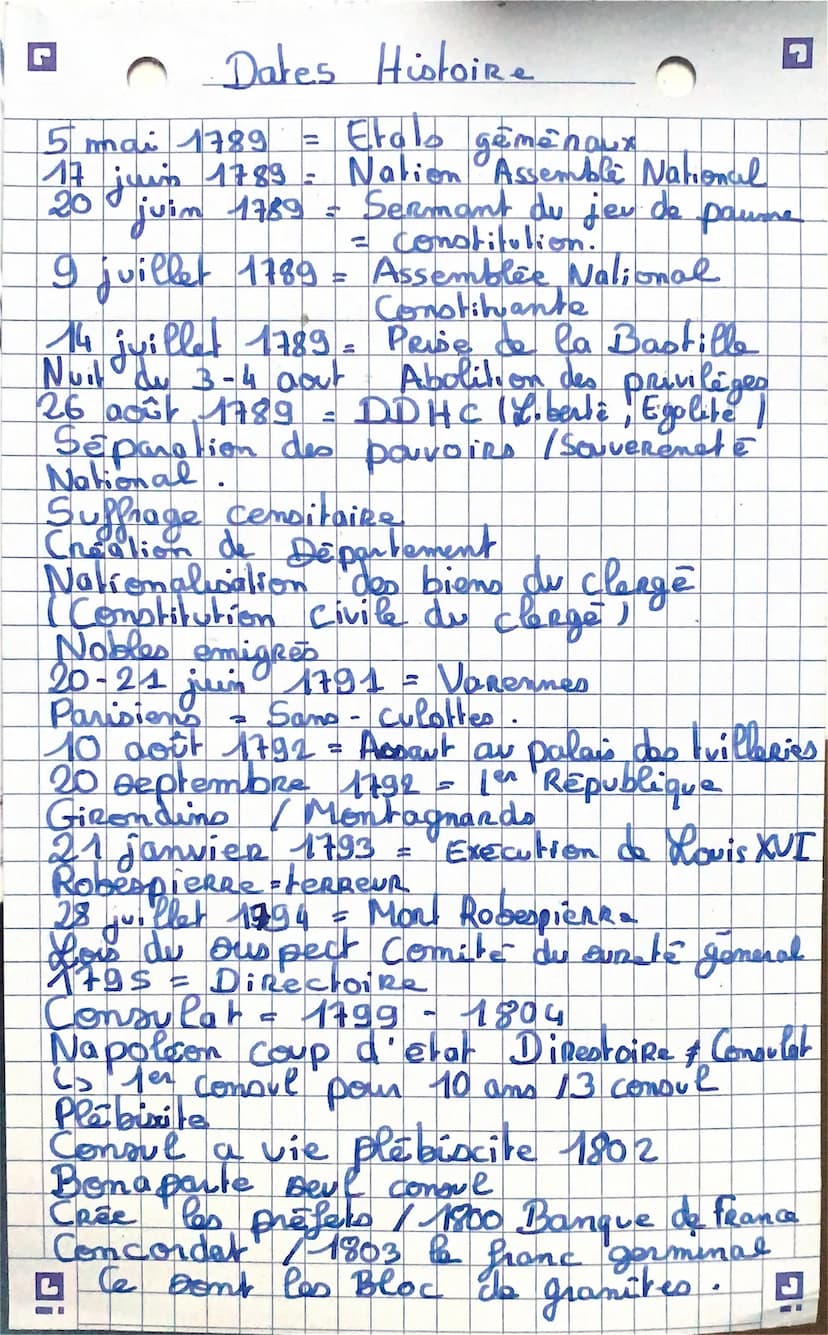 Dates Histoire
5 mai 1789 = Etats généraux
17 juin 1789 = Nation Assemblé National
20 juin 1789 = Sermant du jeu de paume
= constitution.
9 juillet 1789 = Assemblée National
Constituante
14 juillet 1789 = Peise de la Bastille
Nuit du 3-4 aout Abolition des privilèges
26 août 1789 = DDHC (Liberté, Egalité /
Séparation des pouvoirs / Souvereneté
National.
Suffrage censitaire
Création de Département
Nationalisation des biens du clergé
(Constitution civile du clergé)
Nobles emigrés
20-21 juin 1791 = Varennes
Parisiens = Sans-culottes.
10 août 1792 = Assaut au palais des tuilleries
20 septembre 1792 = 1er République
Girondins / Montagnards
21 janvier 1793 = Execution de Louis XVI
Robespierre = terreur
28 juillet 1794 = Mort Robespierre
Lois du suspect Comité du sureté géneral
1795 = Directoire
Consulat = 1799 - 1804
Napoléon coup d'état Directoire ≠ Consulat
↳ 1er consul pour 10 ans /3 consul
Plébisite
Consul a vie plébiscite 1802
Bonaparte seul consul
Crée les préfets / 1800 Banque de france
Concordat / 1803 le franc germinal
Ce sont les Bloc de granites.